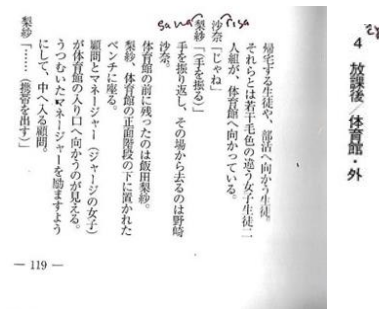 4　放課後／体育館・外
帰宅する生徒や、部活へ向かう生徒。
それらとは若干毛色の違う女子生徒二
人組が、体育館へ向かっている。
risa
梨紗「（手を振る）」
sana
沙奈「じゃね」
手を振り返し、その場から去るのは野崎
沙奈。
体育館の前に残ったのは飯田梨紗。
梨紗、体育館の正面階段の下に置かれた
ベンチに座る。
顧問とマネージャー（ジャージの女子）
が体育館の入り口へ向かうのが見える。
うつむいたマネージャーを励ますよう
にして、中へ入る顧問。
梨紗「……（携帯を出す）」
― 119 ―